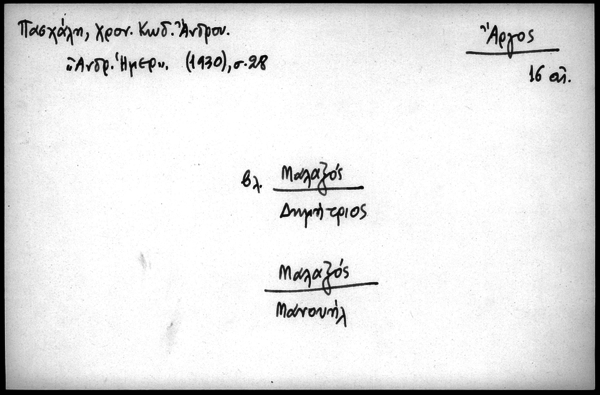 Πασχάλη, Χρον. Κωδ. Ἄνδρου.
Ἄνδρ. Ἡμερ. (1930), σ. 28
Ἄργος
16 αἰ.
βλ. Μαλαξός
Δημήτριος
Μαλαξός
Μανουήλ